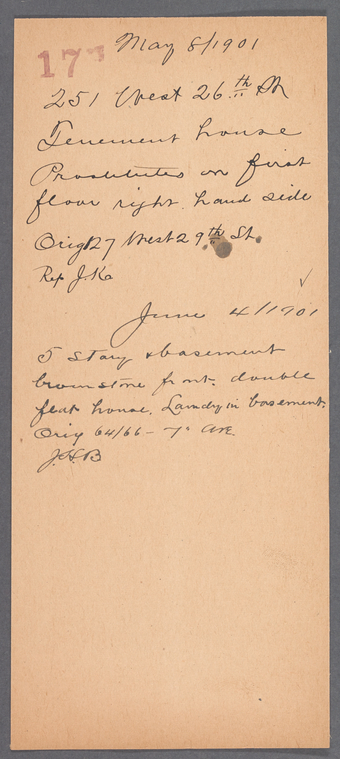 173
May 8/1901
251 West 26th St
Tenement house
Prostitutes on first
floor right hand side
Orig 127 West 29th St.
Rep J.Ka
June 4/1901
5 Story & basement
brownstone front. double
flat house. Laundry in basement.
Orig 64/66 - 7th Ave.
J.H.B